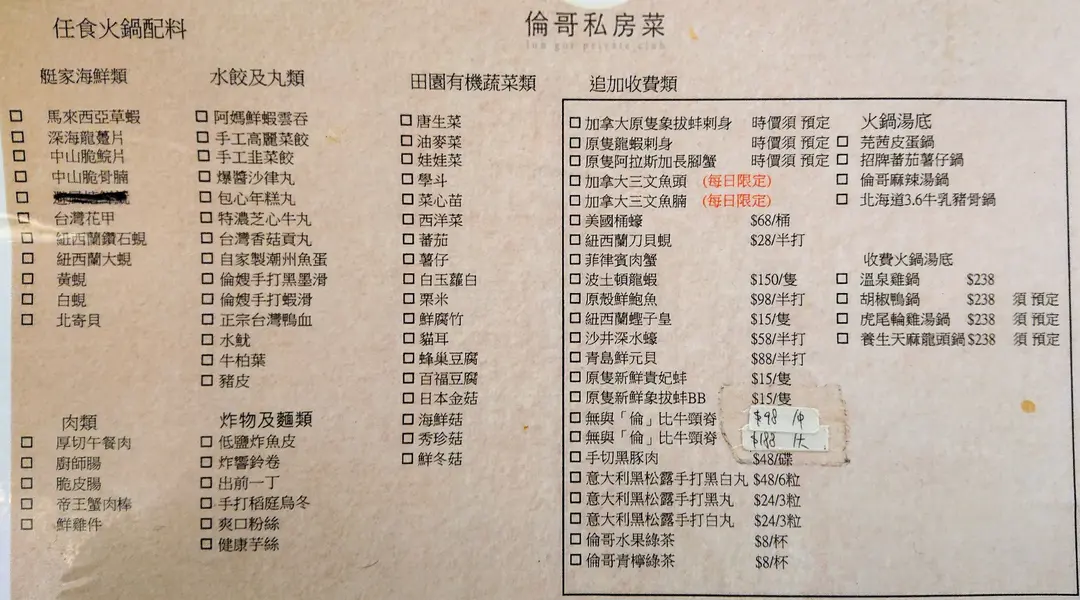 任食火鍋配料
倫哥私房菜
lun gor private club
艇家海鮮類
馬來西亞草蝦
深海龍躉片
中山脆鯇片
中山脆骨腩
台灣花甲
紐西蘭鑽石蜆
紐西蘭大蜆
黃蜆
白蜆
北寄貝
肉類
厚切午餐肉
廚師腸
脆皮腸
帝王蟹肉棒
鮮雞件
水餃及丸類
阿媽鮮蝦雲吞
手工高麗菜餃
手工韭菜餃
爆醬沙律丸
包心年糕丸
特濃芝心牛丸
台灣香菇貢丸
自家製潮州魚蛋
倫嫂手打黑墨滑
倫嫂手打蝦滑
正宗台灣鴨血
水魷
牛柏葉
豬皮
炸物及麵類
低鹽炸魚皮
炸響鈴卷
出前一丁
手打稻庭烏冬
爽口粉絲
健康芋絲
田園有機蔬菜類
唐生菜
油麥菜
娃娃菜
學斗
菜心苗
西洋菜
蕃茄
薯仔
白玉蘿白
粟米
鮮腐竹
貓耳
蜂巢豆腐
百福豆腐
日本金菇
海鮮菇
秀珍菇
鮮冬菇
追加收費類
加拿大原隻象拔蚌刺身 時價須 預定
原隻龍蝦刺身 時價須 預定
原隻阿拉斯加長腳蟹 時價須 預定
加拿大三文魚頭 (每日限定)
加拿大三文魚腩 (每日限定)
美國桶蠔 $68/桶
紐西蘭刀貝蜆 $28/半打
菲律賓肉蟹
波士頓龍蝦 $150/隻
原殼鮮鮑魚 $98/半打
紐西蘭蟶子皇 $15/隻
沙井深水蠔 $58/半打
青島鮮元貝 $88/半打
原隻新鮮貴妃蚌 $15/隻
原隻新鮮象拔蚌BB $15/隻
無與「倫」比牛頸脊 $98 /中
無與「倫」比牛頸脊 $188 /大
手切黑豚肉 $48/碟
意大利黑松露手打黑白丸 $48/6粒
意大利黑松露手打黑丸 $24/3粒
意大利黑松露手打白丸 $24/3粒
倫哥水果綠茶 $8/杯
倫哥青檸綠茶 $8/杯
火鍋湯底
芫茜皮蛋鍋
招牌蕃茄薯仔鍋
倫哥麻辣湯鍋
北海道3.6牛乳豬骨鍋
收費火鍋湯底
溫泉雞鍋 $238
胡椒鴨鍋 $238 須 預定
虎尾輪雞湯鍋 $238 須 預定
養生天麻龍頭鍋 $238 須 預定